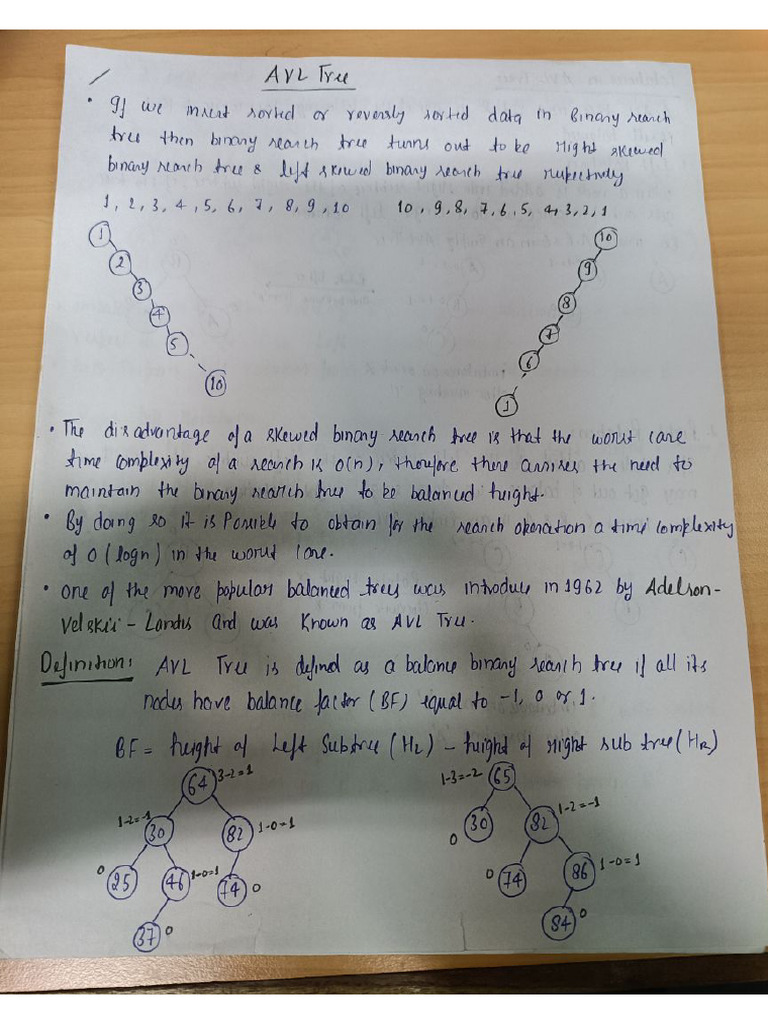 AVL Tree
• If we insert sorted or reversly sorted data in Binary search
tree then binary search tree turns out to be Right skewed
binary search tree & left skewed binary search tree respectively
1, 2, 3, 4, 5, 6, 7, 8, 9, 10    10, 9, 8, 7, 6, 5, 4, 3, 2, 1
1    10
2    9
3    8
4    7
5    6
10    1
• The disadvantage of a skewed binary search tree is that the worst case
time complexity of a search is O(n), therefore there arrises the need to
maintain the binary search tree to be balanced height.
• By doing so it is Possible to obtain for the search operation a time complexity
of O(logn) in the worst case.
• One of the more popular balanced trees was introduce in 1962 by Adelson-
Velskii - Landis and was Known as AVL Tree.
Definition: AVL Tree is defined as a balance binary search tree if all its
nodes have balance factor (BF) equal to -1, 0 or 1.
BF = height of Left Subtree (HL) - height of right sub tree (HR)
64 3-2=1    1-3=-2 65
1-2=-1 30 82 1-0=1    0 30 82 1-2=-1
0 25 46 1-0=1 74 0    0 74 86 1-0=1
37 0    84 0